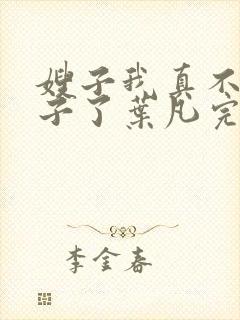 嫂子我真不
子了葉凡完
李金春